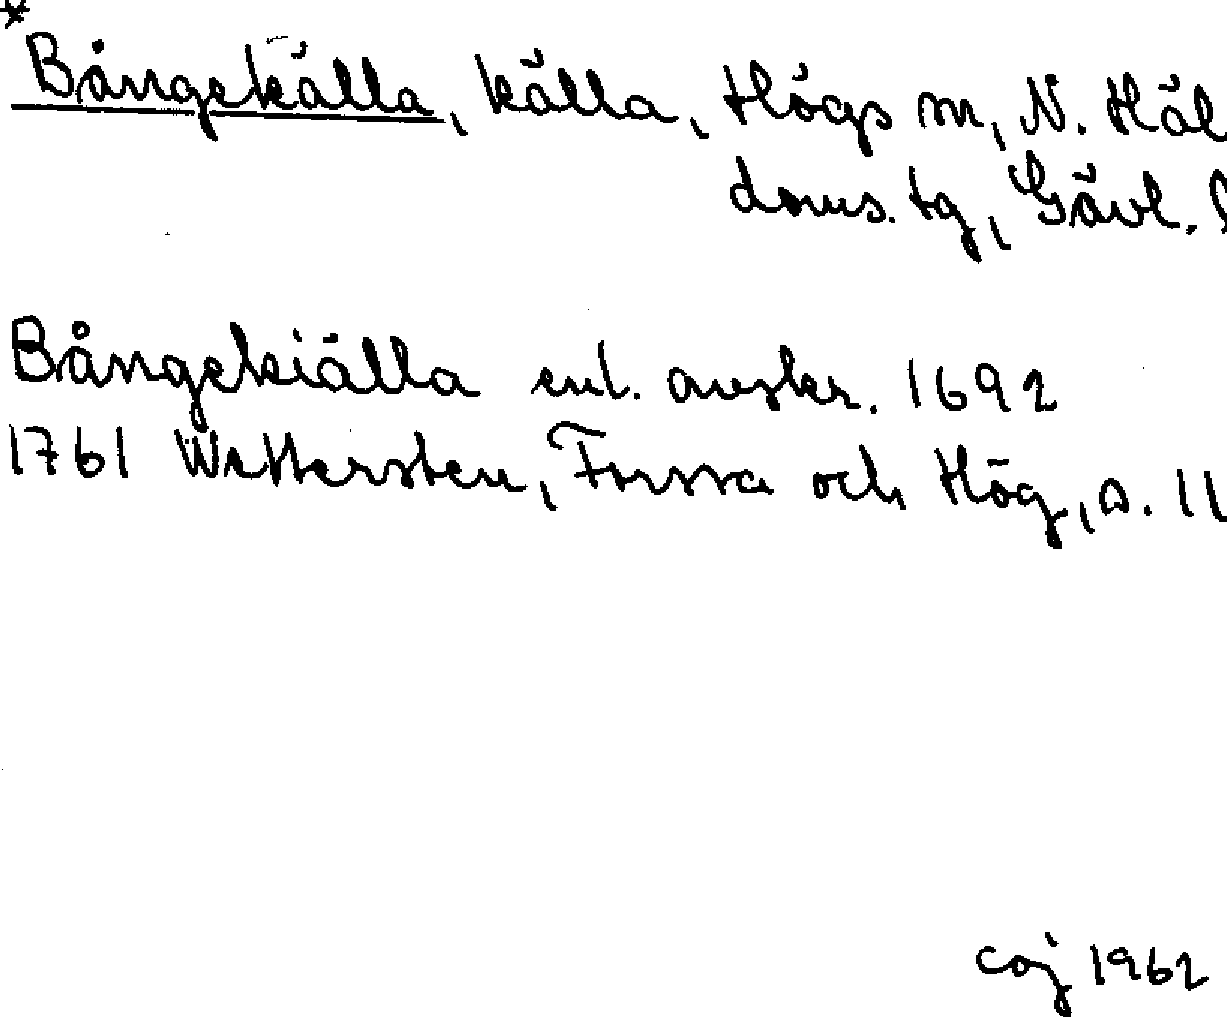 * Bångekälla, källa, Högs sn, N. Häl
doms. tg, Gävl. l
Bångekiälla enl. avskr. 1692
1761 Wettersten, Forssa och Hög, s. 11
coj 1962